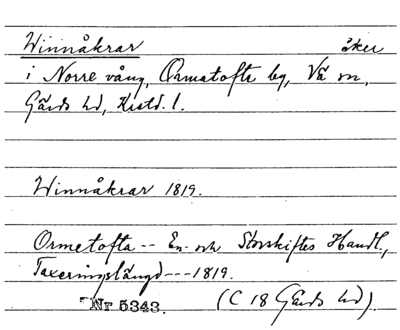 Winnåkrar åker
i Norre vång, Ormatofta by, Vä sn,
Gärds hd, Kristd. l.
Winnåkrar 1819.
Ormetofta -- En- och Storskiftes Handl.,
Taxeringslängd --- 1819.
Nr 5343. (C 18 Gärds hd)